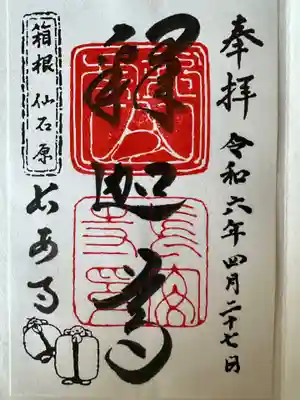 奉拝 令和六年四月二十七日
釋迦尊
箱根 仙石原
長安寺